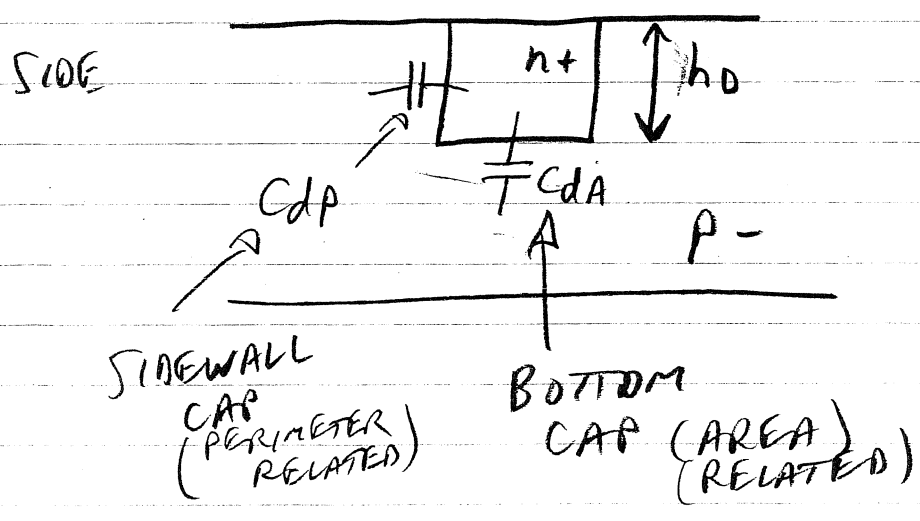 SIDE
n+
hD
Cdp
CdA
p-
SIDEWALL
CAP
(PERIMETER
RELATED)
BOTTOM
CAP (AREA)
(RELATED)